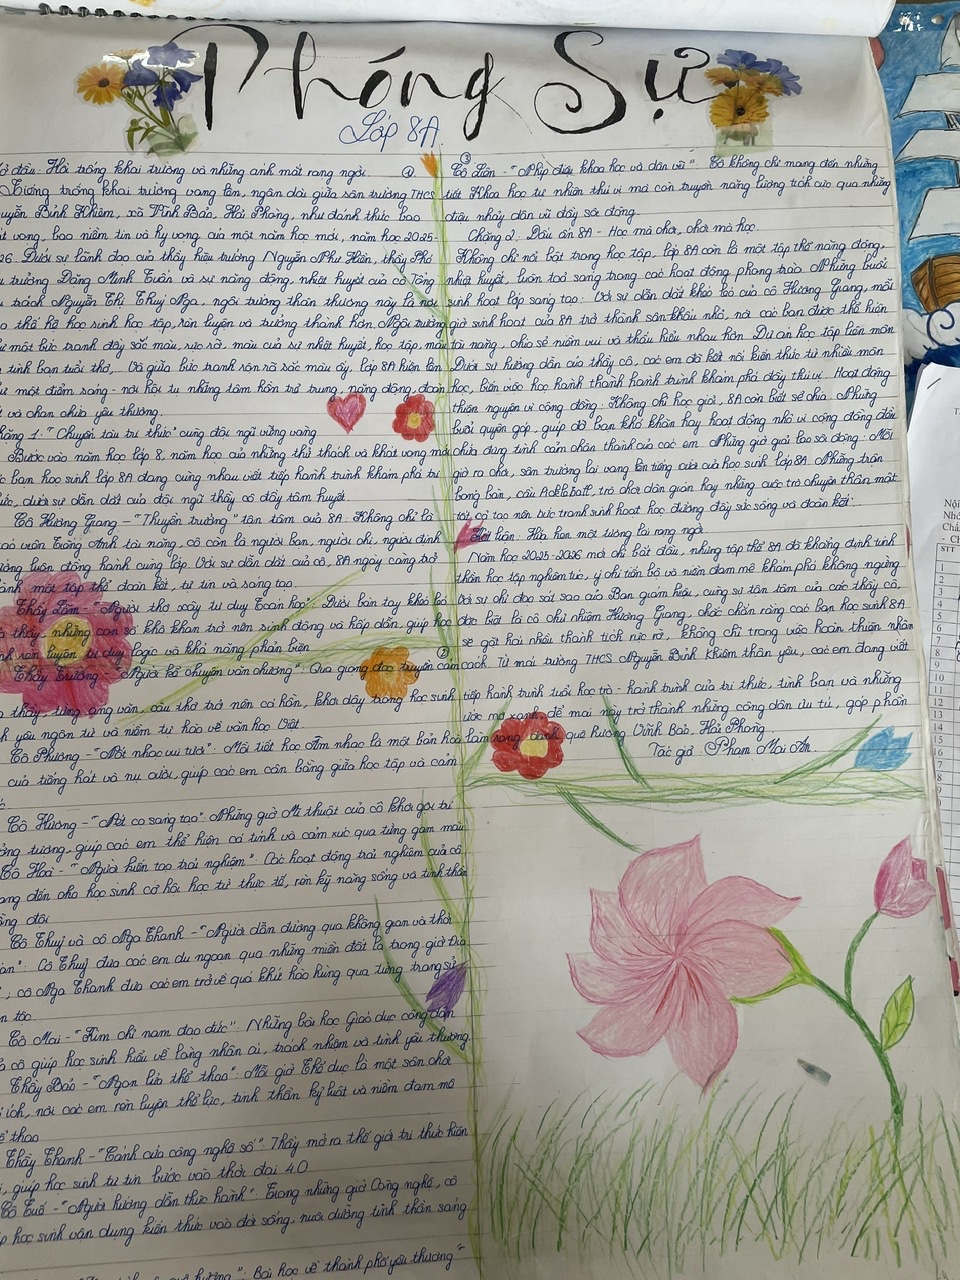 Phóng Sự
Lớp 8A
ở đầu: Hồi trống khai trường và những ánh mắt rạng ngời.
Tiếng trống khai trường vang lên, ngân dài giữa sân trường THCS
uyễn Bỉnh Khiêm, xã Vĩnh Bảo, Hải Phòng, như đánh thức bao
át vọng, bao niềm tin và hy vọng của một năm học mới, năm học 2025-
26. Dưới sự lãnh đạo của thầy hiệu trưởng Nguyễn Như Hán, thầy Phó
u trưởng Đặng Minh Tuân và sự năng động, nhiệt huyết của cô Tổng
ụ trách Nguyễn Thị Thuý Nga, ngôi trường thân thương này là nơi
o thế hệ học sinh học tập, rèn luyện và trưởng thành hơn. Ngôi trường
ư một bức tranh đầy sắc màu, rực rỡ, màu của sự nhiệt huyết, học tập, màu
tình bạn tuổi thơ,.. Và giữa bức tranh rộn rã sắc màu ấy, lớp 8A hiện lên
ư một điểm sáng - nơi hội tụ những tâm hồn trẻ trung, năng động, đoàn
t và chan chứa yêu thương.
hặng 1: "Chuyến tàu tri thức" cùng đội ngũ vững vàng
Bước vào năm học lớp 8, năm học của những thử thách và khát vọng mới
c bạn học sinh lớp 8A đang cùng nhau viết tiếp hành trình khám phá tri
ức, dưới sự dẫn dắt của đội ngũ thầy cô đầy tâm huyết.
Cô Hương Giang - "Thuyền trưởng" tận tâm của 8A: Không chỉ là
iáo viên Tiếng Anh tài năng, cô còn là người bạn, người chị, người định
ướng luôn đồng hành cùng lớp. Với sự dẫn dắt của cô, 8A ngày càng trở
ành một tập thể đoàn kết, tự tin và sáng tạo.
Thầy Lâm - "Người thợ xây tư duy Toán học": Dưới bàn tay khéo léo
a thầy, những con số khô khan trở nên sinh động và hấp dẫn, giúp học
nh rèn luyện tư duy logic và khả năng phản biện.
Thầy Trường - "Người kể chuyện văn chương": Qua giọng đọc truyền cảm
a thầy, từng áng văn, câu thơ trở nên có hồn, khơi dậy trong học sinh
h yêu ngôn từ và niềm tự hào về văn học Việt.
Cô Phương - "Nốt nhạc vui tươi": Mỗi tiết học Âm nhạc là một bản hoà
của tiếng hát và nụ cười, giúp các em cân bằng giữa học tập và cảm
c.
Cô Hường - "Nét cọ sáng tạo": Những giờ Mĩ thuật của cô khơi gợi trí
ởng tượng, giúp các em thể hiện cá tính và cảm xúc qua từng gam màu.
Cô Hoà - "Người kiến tạo trải nghiệm": Các hoạt động trải nghiệm của cô
ang đến cho học sinh cơ hội học từ thực tế, rèn kỹ năng sống và tinh thần
ồng đội.
Cô Thuỷ và cô Nga Thanh - "Người dẫn đường qua không gian và thời
an": Cô Thuỷ đưa các em du ngoạn qua những miền đất lạ trong giờ Địa
; cô Nga Thanh đưa các em trở về quá khứ hào hùng qua từng trang sử
n tộc.
Cô Mai - "Kim chỉ nam đạo đức": Những bài học Giáo dục công dân
a cô giúp học sinh hiểu về lòng nhân ái, trách nhiệm và tình yêu thương.
Thầy Bảo - "Ngọn lửa thể thao": Mỗi giờ Thể dục là một sân chơi
ổ ích, nơi các em rèn luyện thể lực, tinh thần kỷ luật và niềm đam mê
ể thao.
Thầy Thanh - "Cánh cửa công nghệ số": Thầy mở ra thế giới tri thức hiện
i, giúp học sinh tự tin bước vào thời đại 4.0.
Cô Tuế - "Người hướng dẫn thực hành": Trong những giờ Công nghệ, cô
p học sinh vận dụng kiến thức vào đời sống, nuôi dưỡng tinh thần sáng
quê hương": Bài học về thành phố yêu thương
③
Cô Liên - "Nhịp điệu khoa học và dân vũ": Cô không chỉ mang đến những
tiết Khoa học tự nhiên thú vị mà còn truyền năng lượng tích cực qua những
điệu nhảy dân vũ đầy sôi động.
Chặng 2: Dấu ấn 8A - Học mà chơi, chơi mà học.
Không chỉ nổi bật trong học tập, lớp 8A còn là một tập thể năng động,
nhiệt huyết, luôn toả sáng trong các hoạt động phong trào. Những buổi
sinh hoạt lớp sáng tạo: Với sự dẫn dắt khéo léo của cô Hương Giang, mỗi
giờ sinh hoạt của 8A trở thành sân khấu nhỏ, nơi các bạn được thể hiện
tài năng, chia sẻ niềm vui và thấu hiểu nhau hơn. Dự án học tập liên môn
Dưới sự hướng dẫn của thầy cô, các em đã kết nối kiến thức từ nhiều môn
học, biến việc học hành thành hành trình khám phá đầy thú vị. Hoạt động
thiện nguyện vì cộng đồng: Không chỉ học giỏi, 8A còn biết sẻ chia. Những
buổi quyên góp, giúp đỡ bạn khó khăn hay hoạt động nhỏ vì cộng đồng đều
chứa đựng tình cảm chân thành của các em. Những giờ giải lao sôi động: Mỗi
giờ ra chơi, sân trường lại vang lên tiếng cười của học sinh lớp 8A. Những trận
bóng bàn, cầu, trò chơi dân gian hay những cuộc trò chuyện thân mật
tất cả tạo nên bức tranh sinh hoạt học đường đầy sức sống và đoàn kết.
Kết luận: Hứa hẹn một tương lai rạng ngời
Năm học 2025-2026 mới chỉ bắt đầu, nhưng tập thể 8A đã khẳng định tinh
thần học tập nghiêm túc, ý chí tiến bộ và niềm đam mê khám phá không ngừng
Với sự chỉ đạo sát sao của Ban giám hiệu, cùng sự tận tâm của các thầy cô,
đặc biệt là cô chủ nhiệm Hương Giang, chắc chắn rằng các bạn học sinh 8A
sẽ gặt hái nhiều thành tích rực rỡ, không chỉ trong việc hoàn thiện nhân
cách. Từ mái trường THCS Nguyễn Bỉnh Khiêm thân yêu, các em đang viết
tiếp hành trình tuổi học trò - hành trình của tri thức, tình bạn và những
ước mơ xanh, để mai này trở thành những công dân ưu tú, góp phần
làm rạng danh quê hương Vĩnh Bảo, Hải Phòng.
Tác giả: Phạm Mai An.